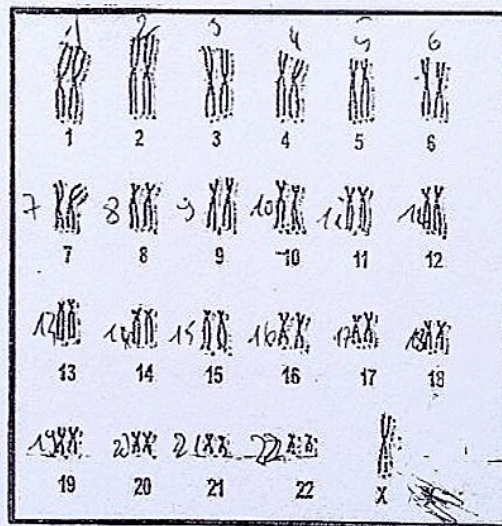 1 2 3 4 5 6
1 2 3 4 5 6
7 8 9 10 11 12
7 8 9 10 11 12
13 14 15 16 17 18
13 14 15 16 17 18
19 20 21 22
19 20 21 22 X